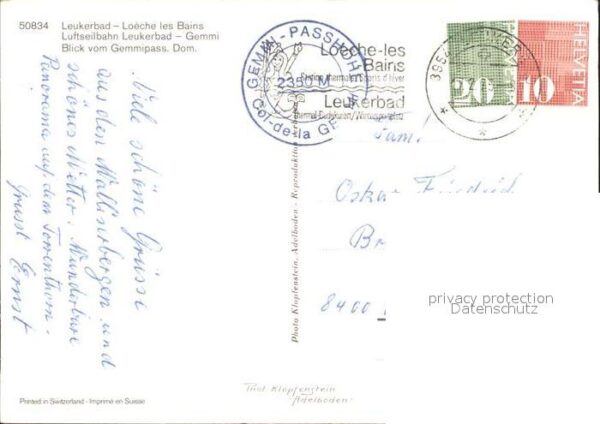 50834 Leukerbad – Loèche les Bains
Luftseilbahn Leukerbad – Gemmi
Blick vom Gemmipass. Dom.
Viele schöne Grüsse
aus den Walliserbergen und
schönes Wetter. Wunderbare
Panorama auf dem Torrenthorn.
Grusst Ernst
GEMMI-PASSHÖHE
2350 M
Col-de-la GEMMI
Loèche-les
Bains
Station thermale Sports d'hiver
Leukerbad
Thermal-Badekurort/Wintersportplatz
HELVETIA 20
HELVETIA 10
Fam.
Oskar Friedrich
Br
8400
Photo Klopfenstein, Adelboden - Reproduktion
privacy protection
Datenschutz
Printed in Switzerland - Imprimé en Suisse
Thut Klopfenstein
Adelboden